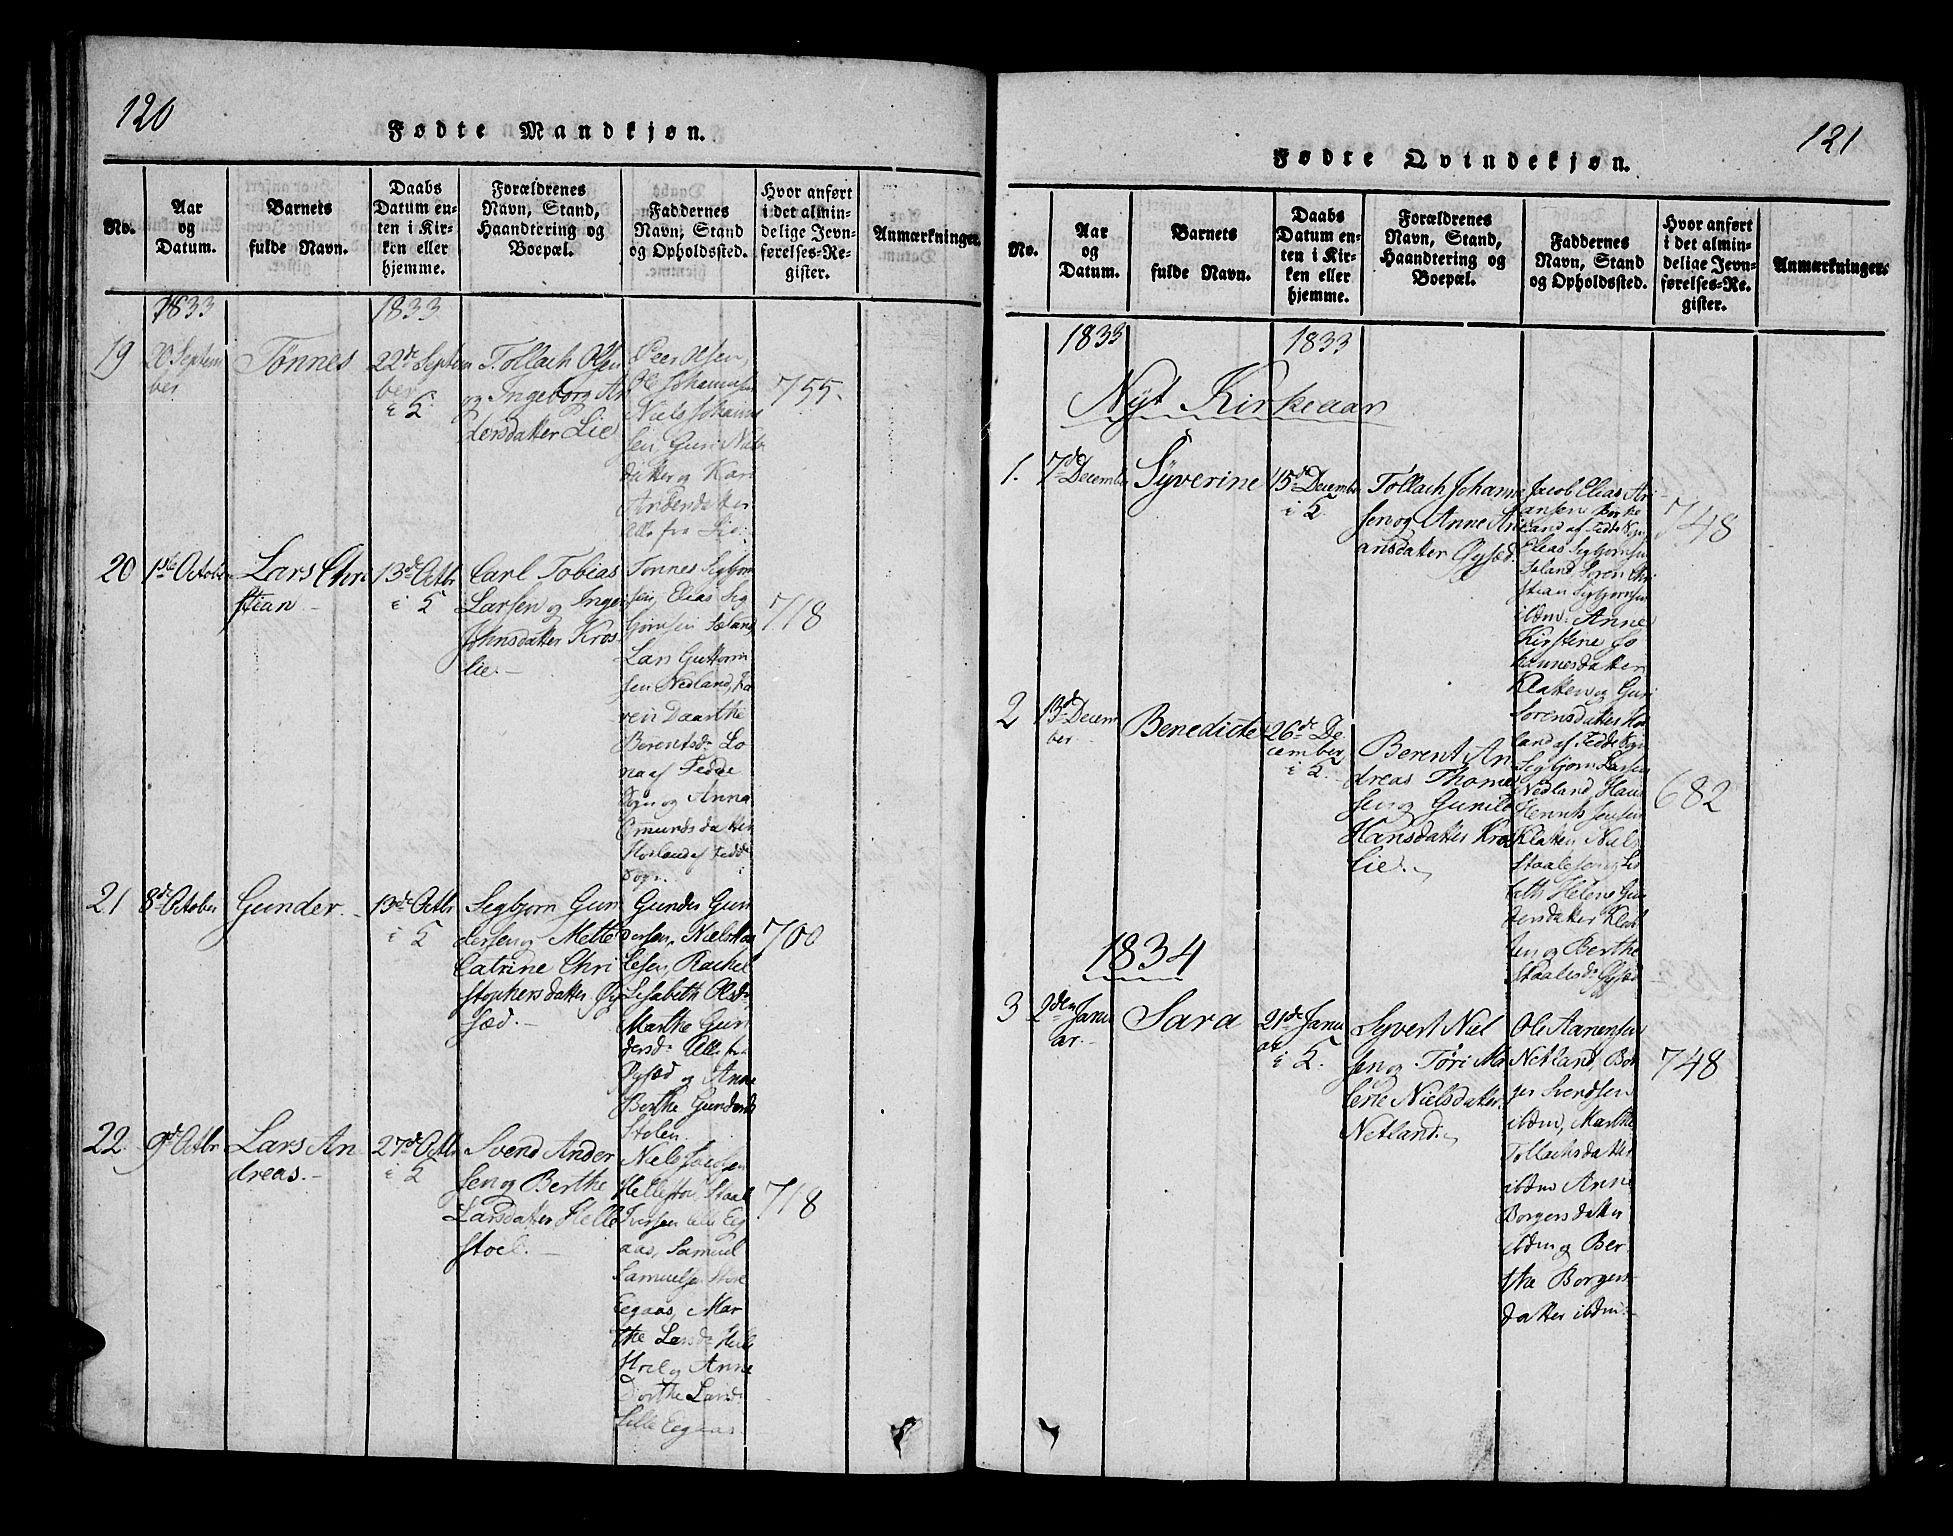 120
Fødte Mandkjøn.
No.
Aar
og
Datum.
Barnets
fulde Navn.
Daabs
Datum en-
ten i Kir-
ken eller
hjemme.
Forældrenes
Navn, Stand,
Haandtering og
Boepæl.
Faddernes
Navn, Stand
og Opholdssted.
Hvor anført
i det almin-
delige Jevn-
førelses-Re-
gister.
Anmærkninger.
1833
1833
19
20 Septem
ber
Tönnes
22de Septem
ber
i K
Tollach Olsen
og Ingeborg An
dersdatter Lie
Peer Olsen,
Ole Johannesen
Niels Johanne
sen Guri Niels
datter og Kari
Andersdatter
alle fra Lie.
755.
20
1ste October
Lars Chri
stian
13de Octbr
i K
Carl Tobias
Larsen og Inger
Johnsdatter Kros
lie.
Tönnes Segbjorn
sen, Elias Seg
bjornsen
Lars Guttorm
sen Nedland,
Daarthe
Berentsd.
af Fedde
Sogn og Anna
Omundsdatter
af Fedde
Sogn.
718
21
8de October
Gunder.
13de Octbr
i K
Segbjorn Gun
dersen og Mette
Catrine Chri
stophersdatter Øy
sæd.
Gunder Gun
dersen, Niels
Rachel
Lisabeth Olsd.
Marthe Gun
dersd. Alle fra
Øysæd og Anne
Berthe Gundersd.
Stolen.
700
22.
9de Octbr
Lars An
dreas.
27de Octbr
i K
Svend Ander
sen og Berthe
Larsdatter Helle
stoel.
Niels Jacobsen
Hellestoel, Staale
Iversen lille Eeg
aas, Samuel
Samuelsen Store
Eegaas, Mar
the Larsd. Helle
stoel og Anne
Dorthe Larsd.
lille Eegaas.
718
121
Fødte Qvindekjøn.
No.
Aar
og
Datum.
Barnets
fulde Navn.
Daabs
Datum en-
ten i Kir-
ken eller
hjemme.
Forældrenes
Navn, Stand,
Haandtering og
Boepæl.
Faddernes
Navn, Stand
og Opholdssted.
Hvor anført
i det almin-
delige Jevn-
førelses-Re-
gister.
Anmærkninger.
1833
1833
Nyt Kirkeaar
1.
7de December
Syverine
15de December
i K
Tollach Johanne
sen og Anne Ari
ansdatter Øysæd.
Jacob Elias Ari
ansen Birke
land af Fedde Sogn
Elias Segbjornsen
Soren Chri
stian Segbjornsen
ibdm. Anne
Kirstene Jo
hannesdatter
Klatten og Guri
Sorensdatter
land af Fedde Sogn
748
2
13de Decem
ber
Benedicte
26de De
cember
i K
Berent An
dreas Thomes
sen og Gunild
Hansdatter Kros
lie.
Segbjorn Larsen
Nedland, Hans
Henrik Jensen
Klatten Niels
Staalesen, Lis
beth Helene Gun
dersdatter Klat
ten og Berthe
Staalesd. Øysæd
682
1834
3
2den Janu
ar.
Sara
21de Janu
ar
i K.
Syvert Niel
sen og Tøri Ma
lene Nielsdatter
Netland.
Ole Aanensen
Netland, Bor
ger Svendsen
ibdm, Marthe
Tollachsdatter
ibdm Anne
Borgersdatter
ibdm og Ber
the Borgers
datter ibdm.
748